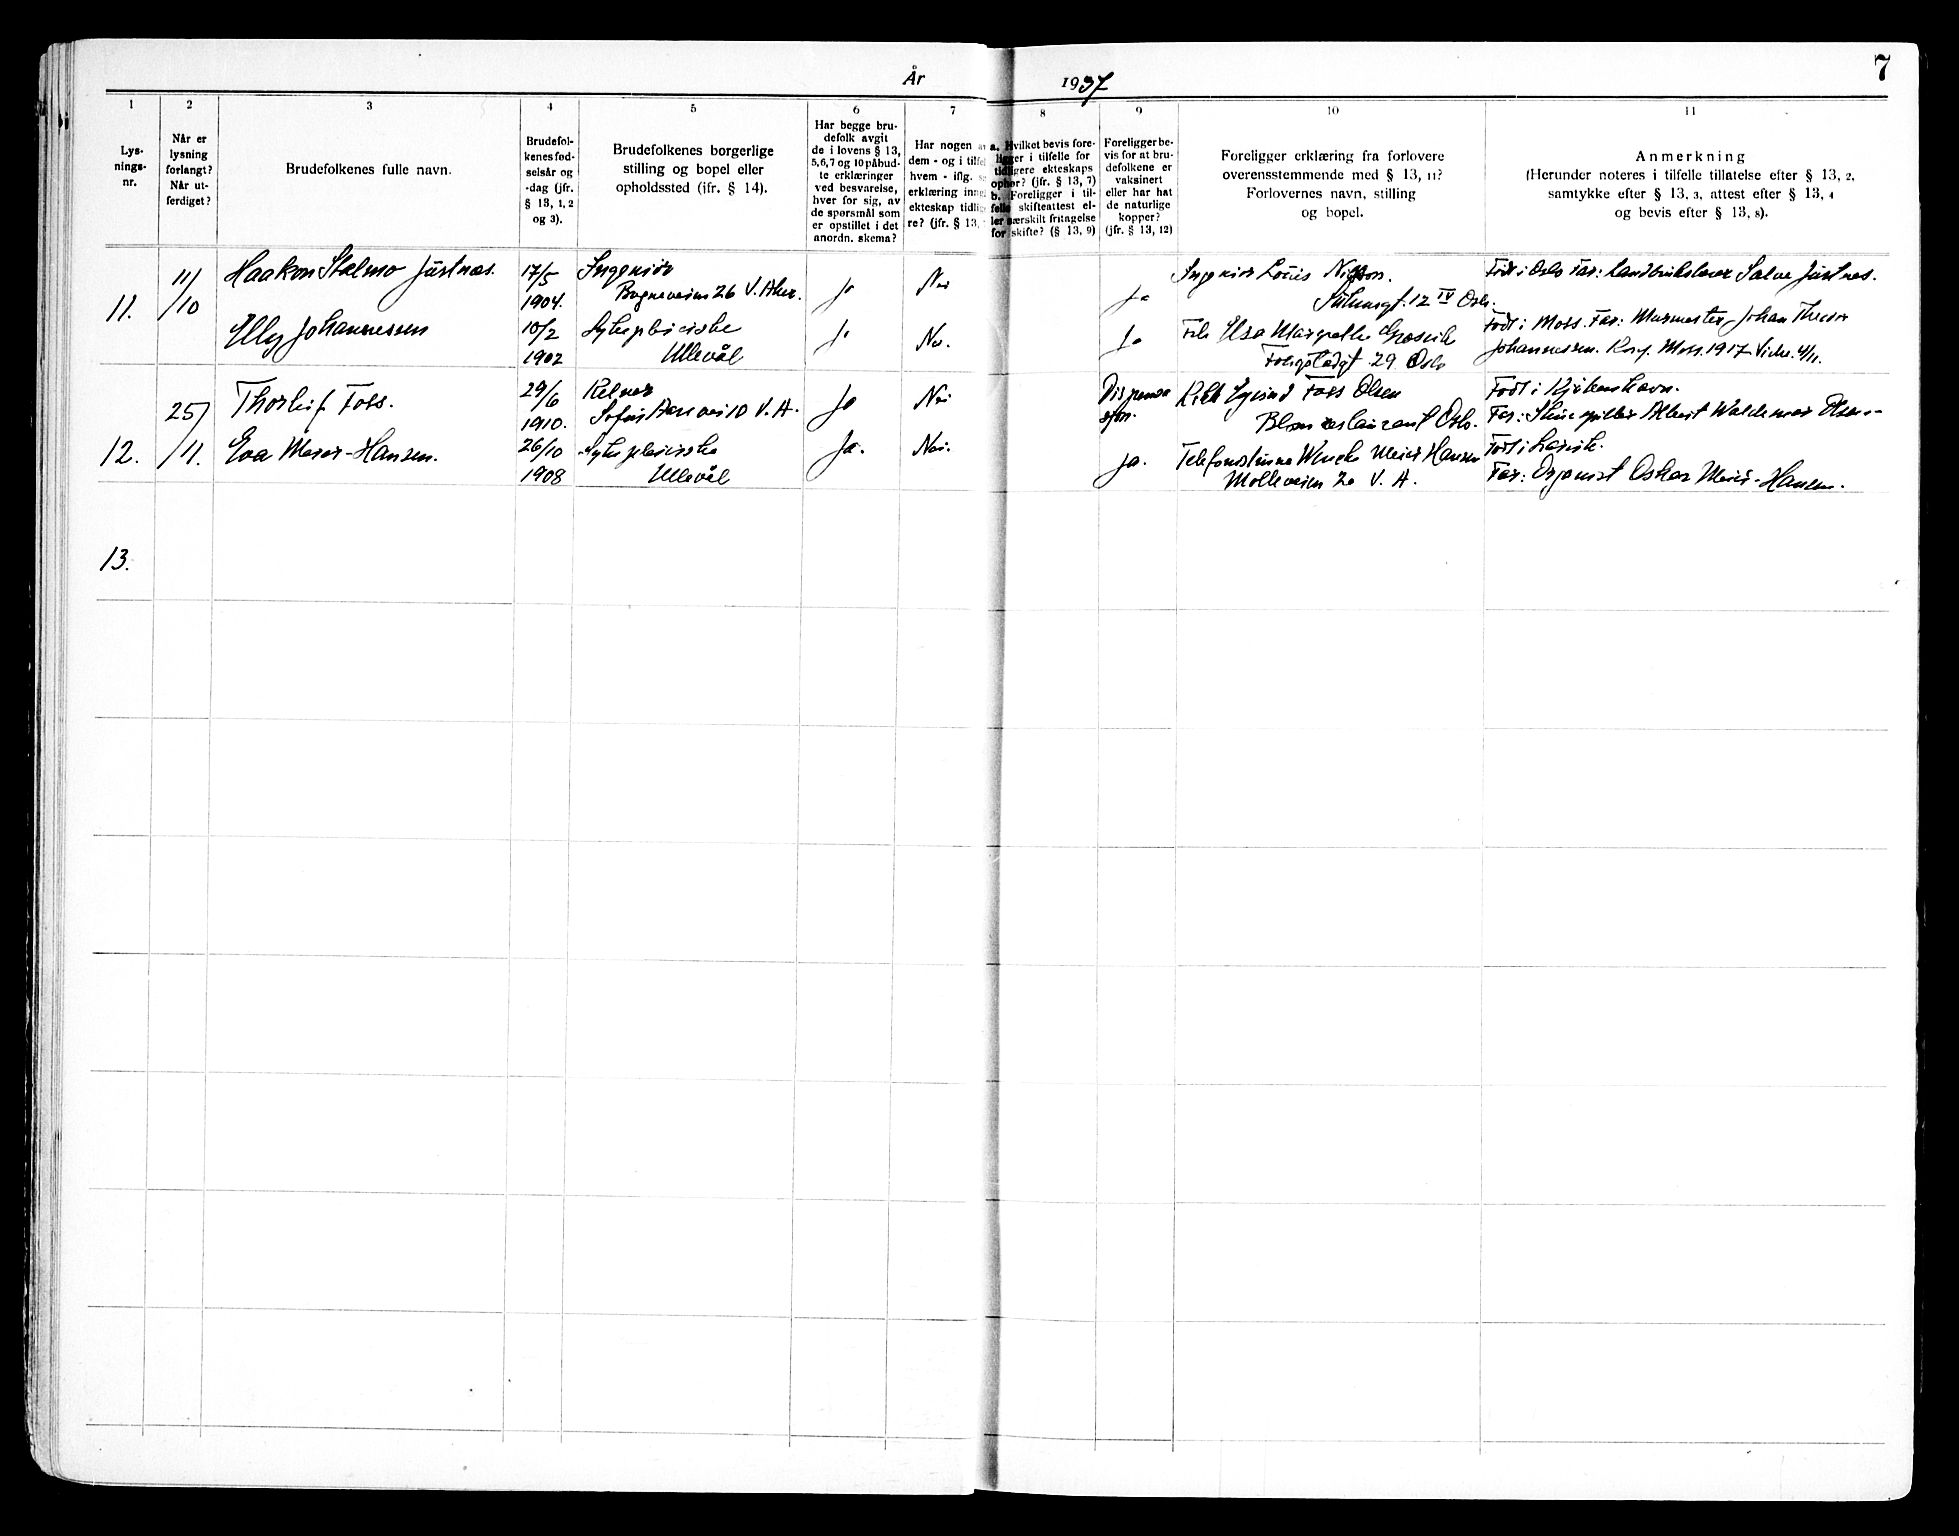 År 1937
7
1 2 3 4 5 6 7 8 9 10 11
Lys-
nings-
nr.
Når er
lysning
forlangt?
Når ut-
ferdiget?
Brudefolkenes fulle navn.
Brudefol-
kenes fød-
selsår og
-dag (jfr.
§ 13, 1, 2
og 3).
Brudefolkenes borgerlige
stilling og bopel eller
opholdssted (ifr. § 14).
Har begge bru-
defolk avgit
de i lovens § 13,
5,6,7 og 10 påbud-
te erklæringer
ved besvarelse,
hver for sig, av
de spørsmål som
er opstillet i det
anordn. skema?
Har nogen a
dem - og i tilfel
hvem - iflg.
erklæring inng
ekteskap tidlig
re? (jfr. § 13,
a. Hvilket bevis fore-
ligger i tilfelle for
tidligere ekteskaps
ophør? (jfr. § 13, 7)
b. Foreligger i til-
felle skifteattest el-
ler særskilt fritagelse
for skifte? (§ 13, 9)
Foreligger be-
vis for at bru-
defolkene er
vaksinert
eller har hat
de naturlige
kopper?
(jfr. § 13, 12)
Foreligger erklæring fra forlovere
overensstemmende med § 13, 11?
Forlovernes navn, stilling
og bopel.
Anmerkning
(Herunder noteres i tilfelle tillatelse efter § 13, 2,
samtykke efter § 13, 3, attest efter § 13, 4
og bevis efter § 13, 8).
11.
11/
/10
Haakon Stalmo Justnæs.
17/5
1904.
Ingeniør
Bogneveien 26 V. Aker.
Ja
Nei
Ja
Ingeniør Louis Nilsson.
12 IV Oslo.
Født i Oslo Far: Landbrukslærer Salve Justnæs.
Elly Johannessen
10/2
1902
Sykepleierske
Ullevål
Ja
Nei.
Ja
Elsa Margrethe
29 Oslo
Født i Moss. Far: Murmester Johan Theodor
Johannessen. Konf. Moss. 1917. Viede. 4/11.
12.
25/
/11.
Thorleif Foss.
29/6
1910.
Kelner
Sofus Aars vei 10 V. A.
Ja
Nei
Dispensa
sjon.
Eyvind Foss Olsen
Oslo.
Født i Kjøbenhavn.
Far: Skuespiller Albert Waldemar Olsen
Eva Meier-Hansen.
26/10
1908
Sykepleierske
Ullevål
Ja.
Nei.
Ja.
Telefonistinne Wencke Meier Hansen
Mølleveien 2a V. A.
Født i Larvik.
Far: Organist Oskar Meier-Hansen.
13.